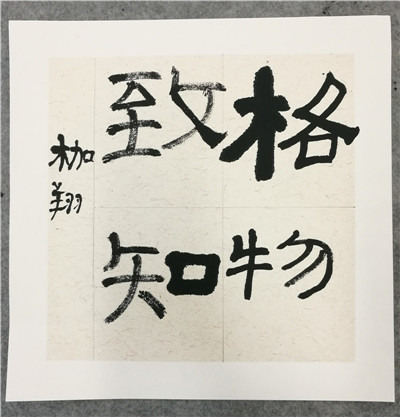 格物
致知
枷翔